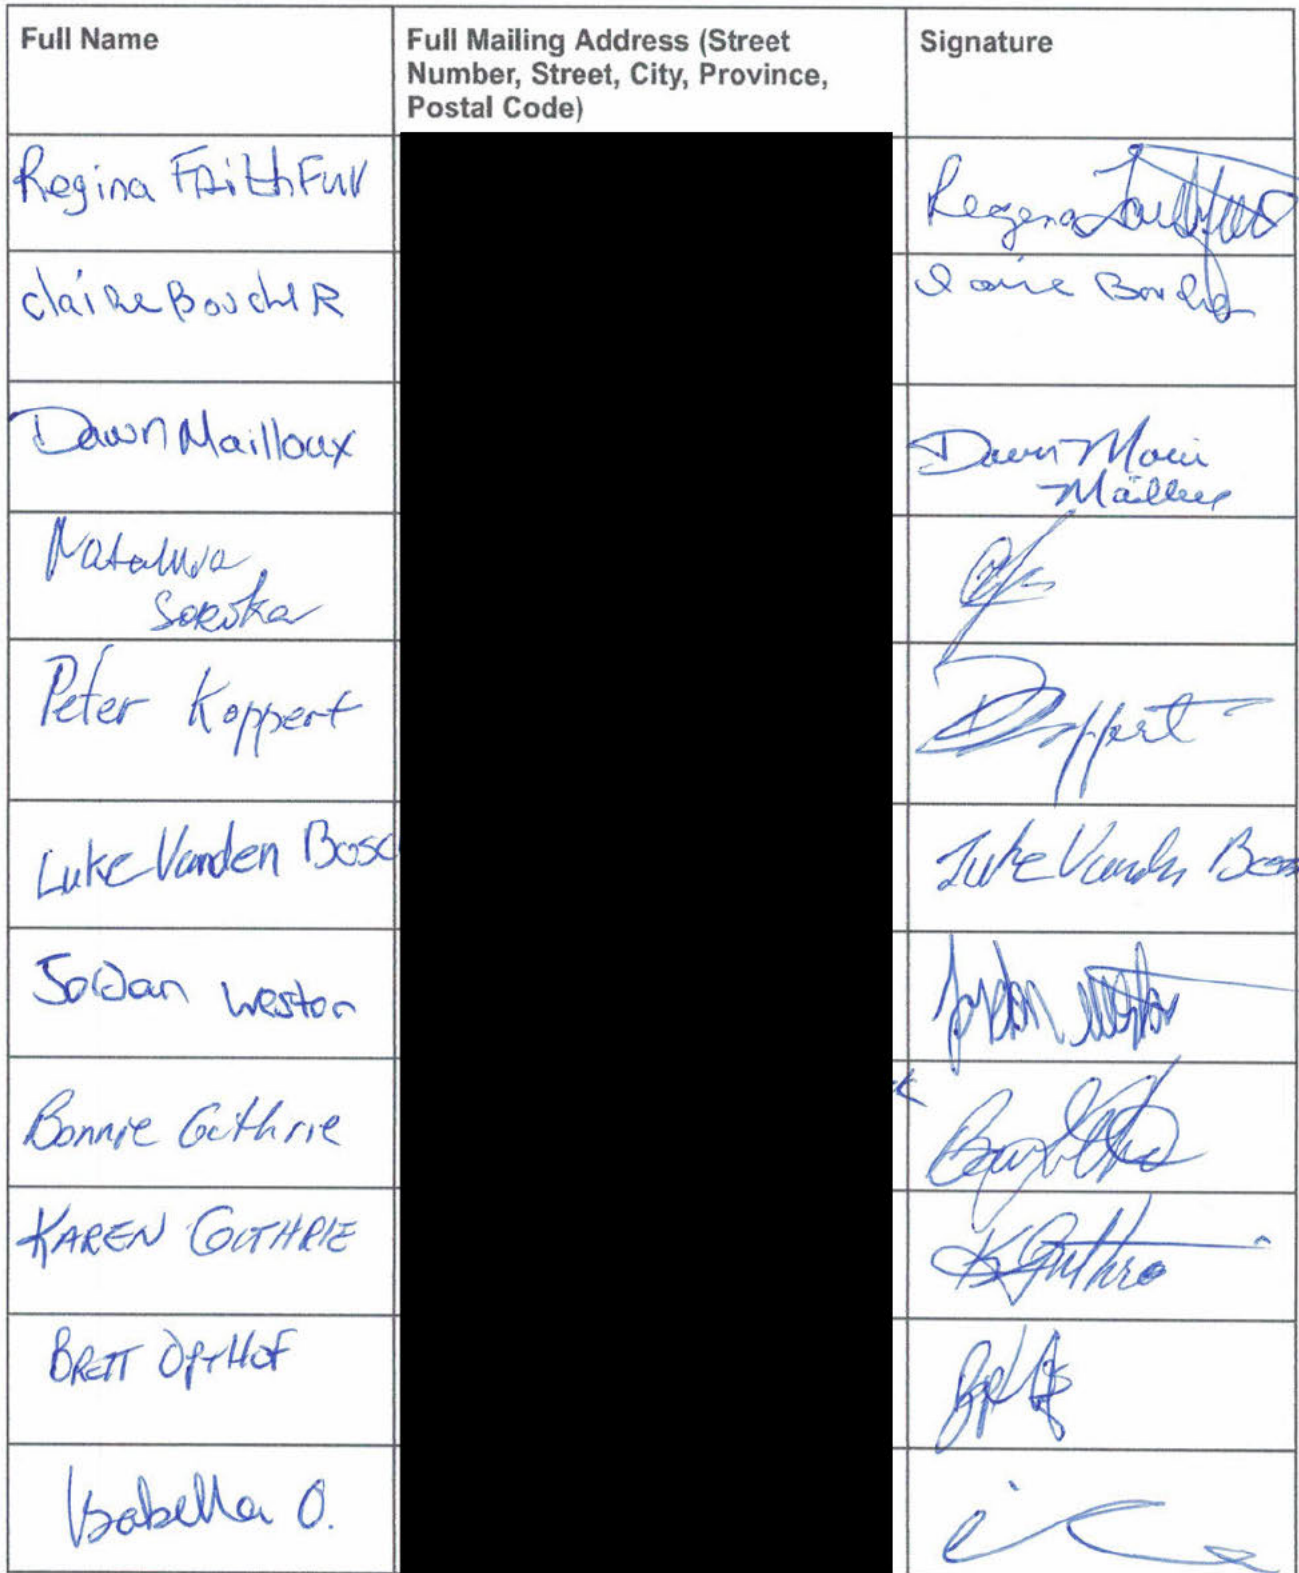 Full Name
Full Mailing Address (Street
Number, Street, City, Province,
Postal Code)
Signature
Regina FAithFull
Claire BouchER
Dawn Mailloux
Dawn Marie
Nataliya
Soroka
Peter Koppert
Luke Vanden Bosc
Luke Vanden
Jordan Weston
Jordan Weston
Bonnie Guthrie
KAREN GUTHRIE
K Guthrie
BRETT OptHof
Isabella O.